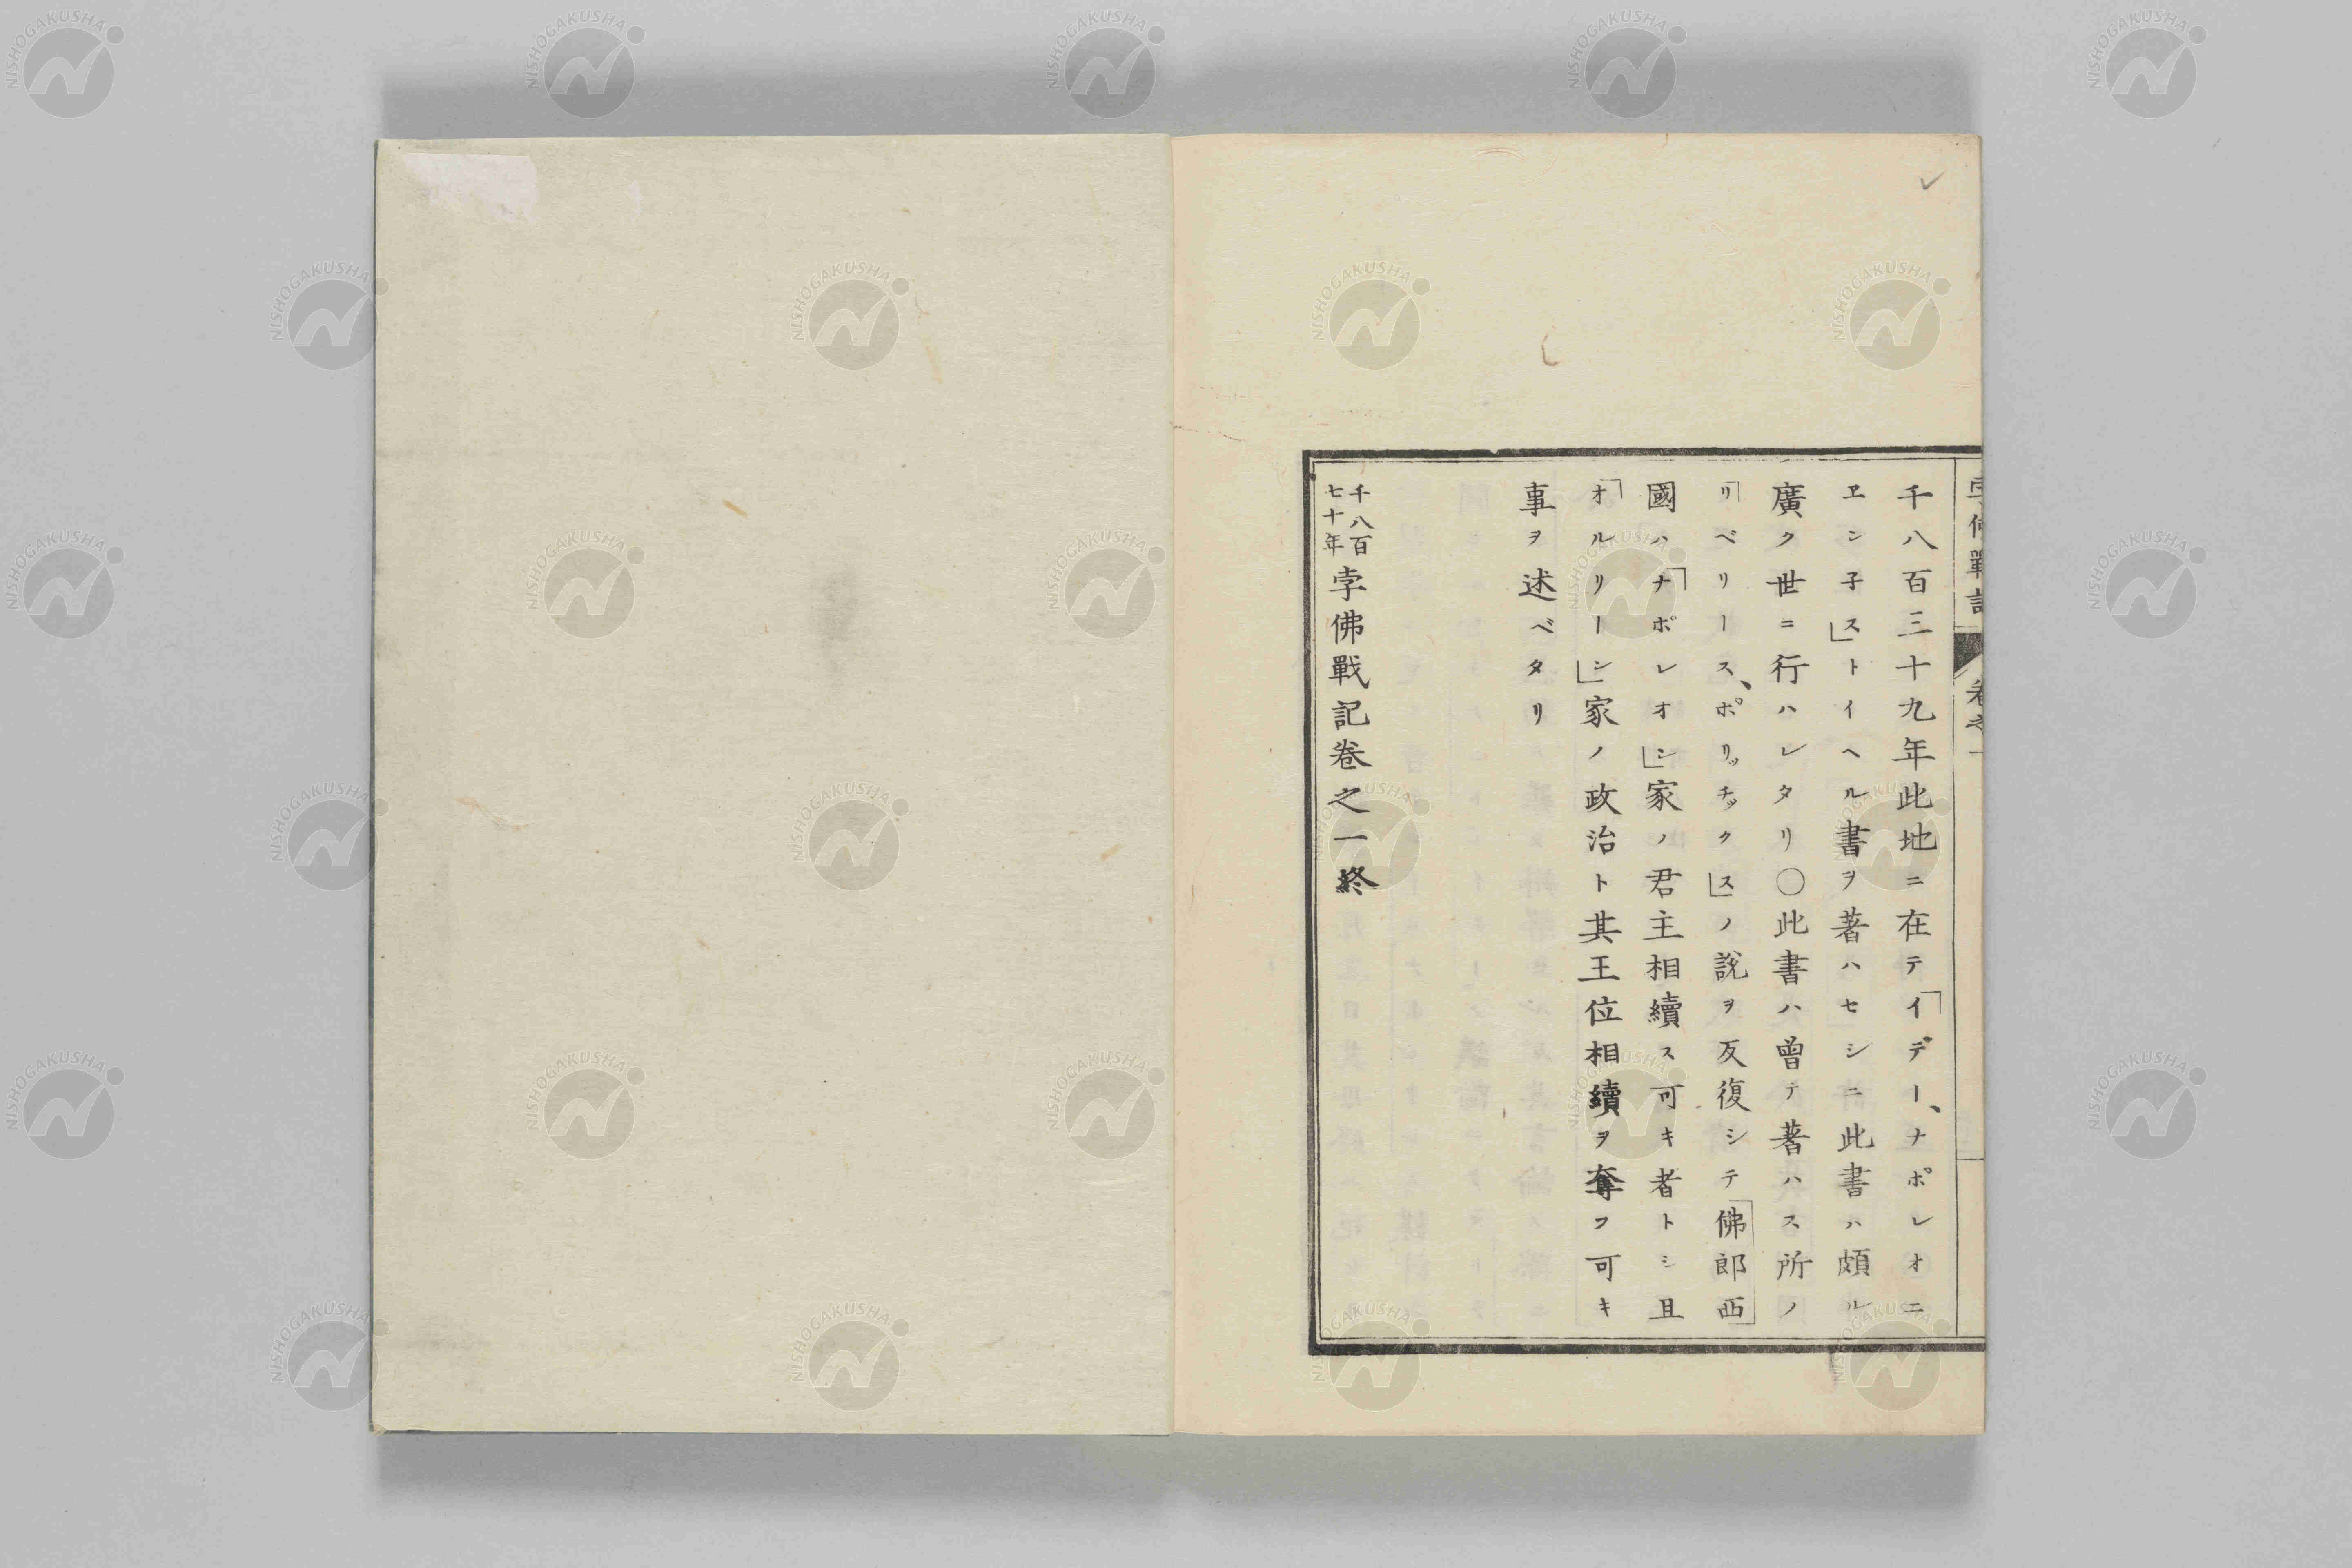 千八百三十九年此地ニ在テ「イデー、ナポレオニ
ヱン子ス」トイヘル書ヲ著ハセシニ此書ハ頗ル
廣ク世ニ行ハレタリ〇此書ハ曾テ著ハス所ノ
「リベリース、ポリッチックス」ノ說ヲ反復シテ「佛郎西」
國ハ「ナポレオン」家ノ君主相續ス可キ者トシ且
「オルリーン」家ノ政治ト其王位相續ヲ奪フ可キ
事ヲ述ベタリ
千八百七十年孛佛戰記卷之一終
孛佛戰記 卷之一
NISHOGAKUSHA